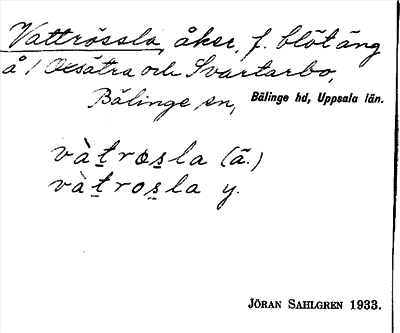 Vattrössla, åker, f. blöt äng
å / Oxsätra och Svartarbo,
Bälinge sn, Bälinge hd, Uppsala län.
vàt̠ros̠la (ä.)
vàt̠ros̠la y.
JÖRAN SAHLGREN 1933.